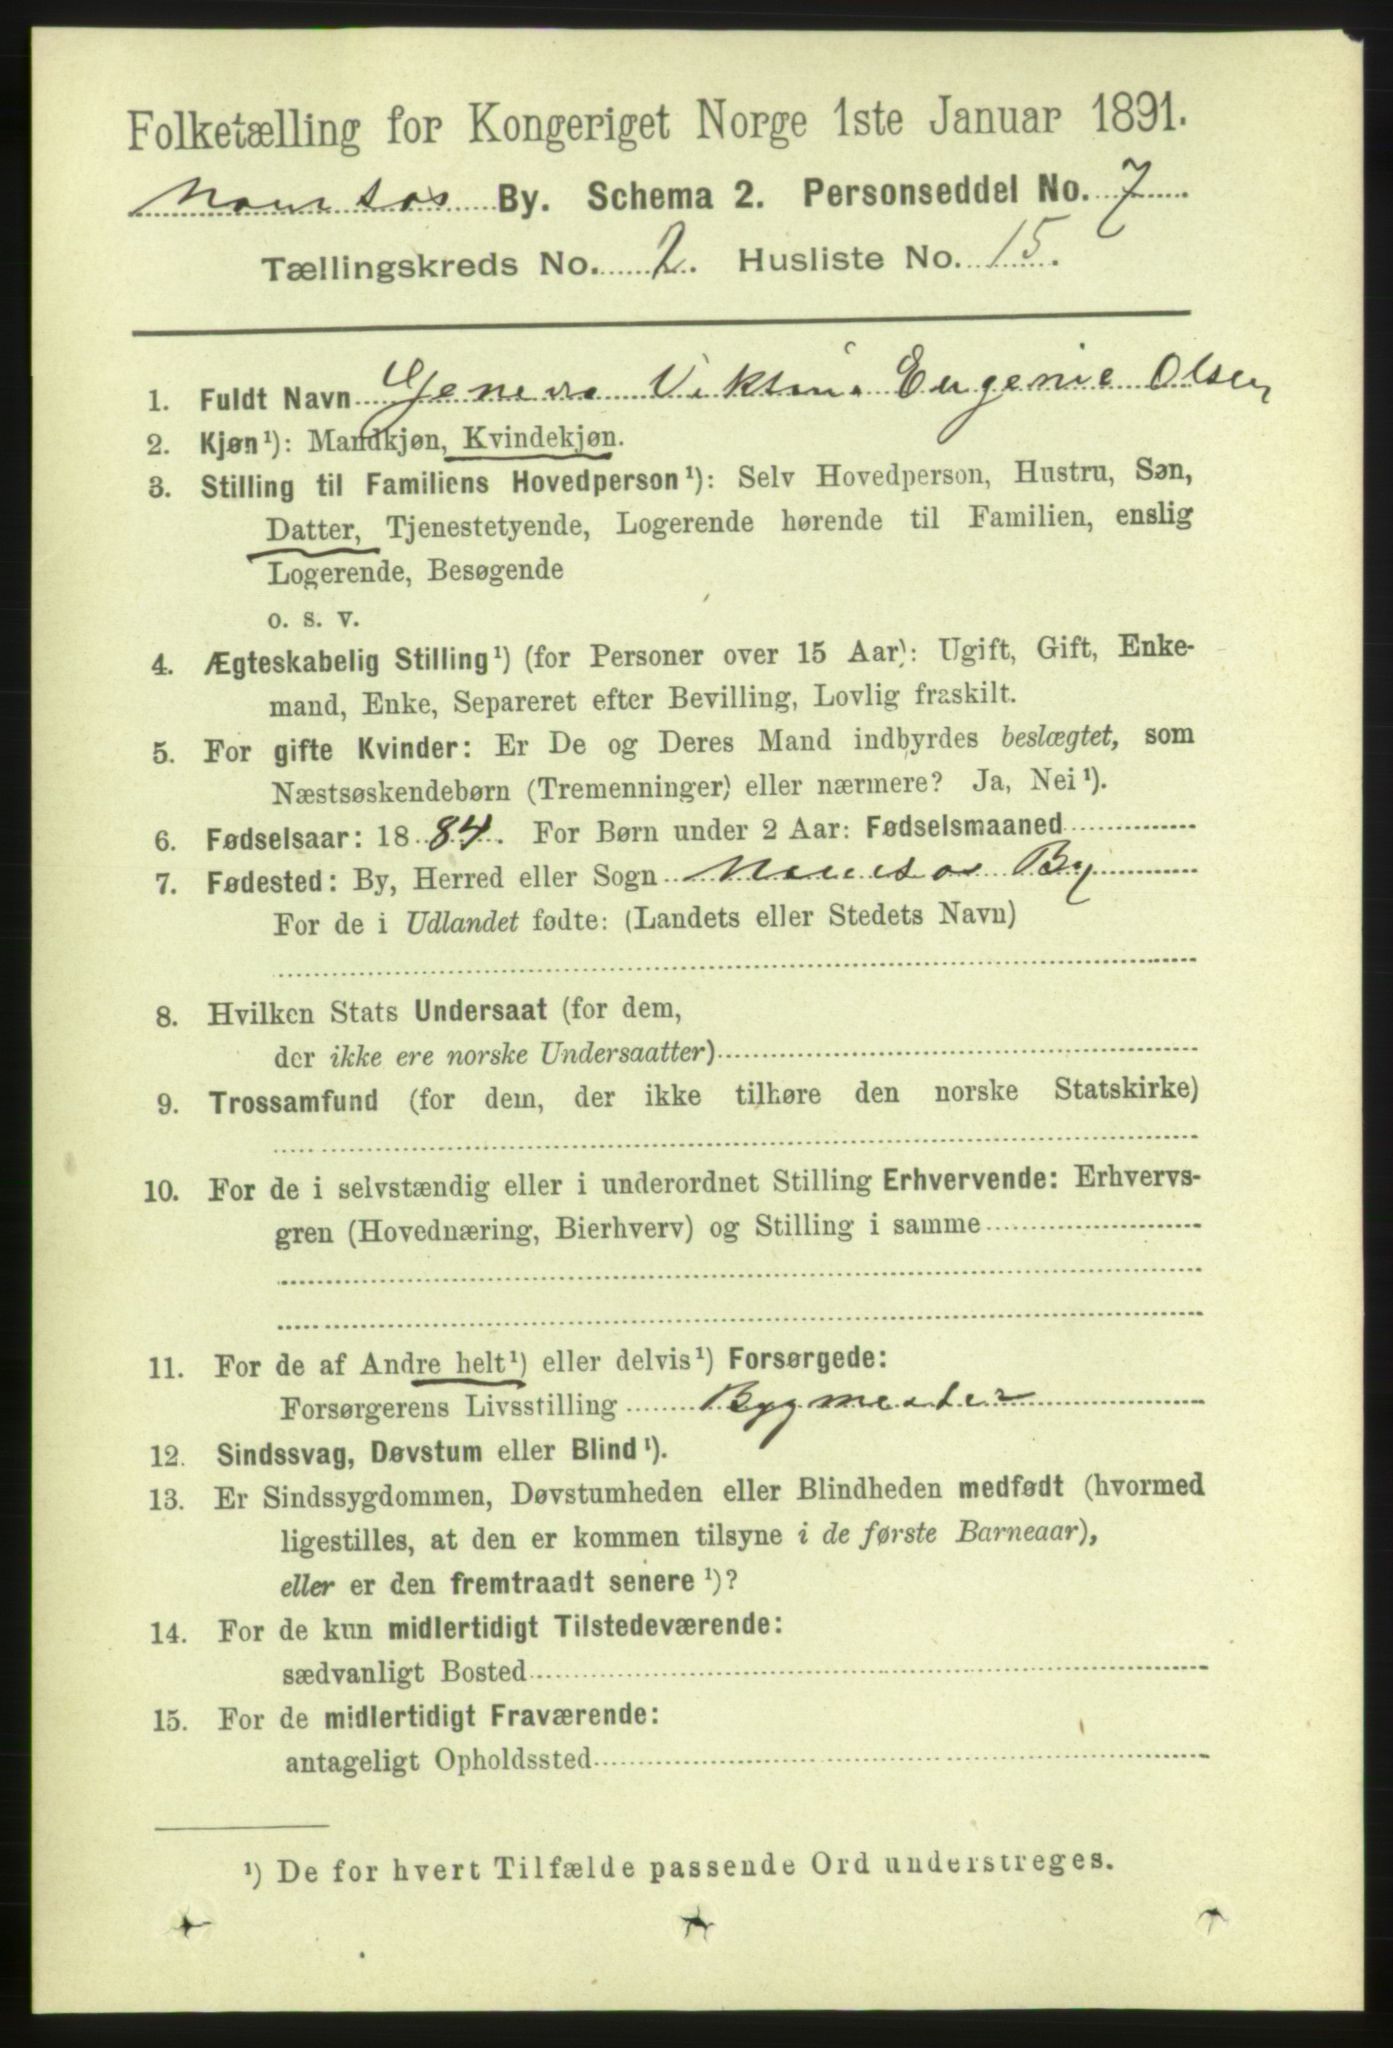 Folketælling for Kongeriget Norge 1ste Januar 1891.
Namsos By. Schema 2. Personseddel No. 7
Tællingskreds No. 2. Husliste No. 15.
1. Fuldt Navn Viktoria Eugenie Olsen
2. Kjøn¹): Mandkjøn, Kvindekjøn.
3. Stilling til Familiens Hovedperson¹): Selv Hovedperson, Hustru, Søn,
Datter, Tjenestetyende, Logerende hørende til Familien, enslig
Logerende, Besøgende
o. s. v.
4. Ægteskabelig Stilling¹) (for Personer over 15 Aar): Ugift, Gift, Enke-
mand, Enke, Separeret efter Bevilling, Lovlig fraskilt.
5. For gifte Kvinder: Er De og Deres Mand indbyrdes beslægtet, som
Næstsøskendebørn (Tremenninger) eller nærmere? Ja, Nei¹).
6. Fødselsaar: 1884. For Børn under 2 Aar: Fødselsmaaned
7. Fødested: By, Herred eller Sogn Namsos By
For de i Udlandet fødte: (Landets eller Stedets Navn)
8. Hvilken Stats Undersaat (for dem,
der ikke ere norske Undersaatter)
9. Trossamfund (for dem, der ikke tilhøre den norske Statskirke)
10. For de i selvstændig eller i underordnet Stilling Erhvervende: Erhvervs-
gren (Hovednæring, Bierhverv) og Stilling i samme
11. For de af Andre helt¹) eller delvis¹) Forsørgede:
Forsørgerens Livsstilling Bygmester
12. Sindssvag, Døvstum eller Blind¹).
13. Er Sindssygdommen, Døvstumheden eller Blindheden medfødt (hvormed
ligestilles, at den er kommen tilsyne i de første Barneaar),
eller er den fremtraadt senere¹)?
14. For de kun midlertidigt Tilstedeværende:
sædvanligt Bosted
15. For de midlertidigt Fraværende:
antageligt Opholdssted
¹) De for hvert Tilfælde passende Ord understreges.